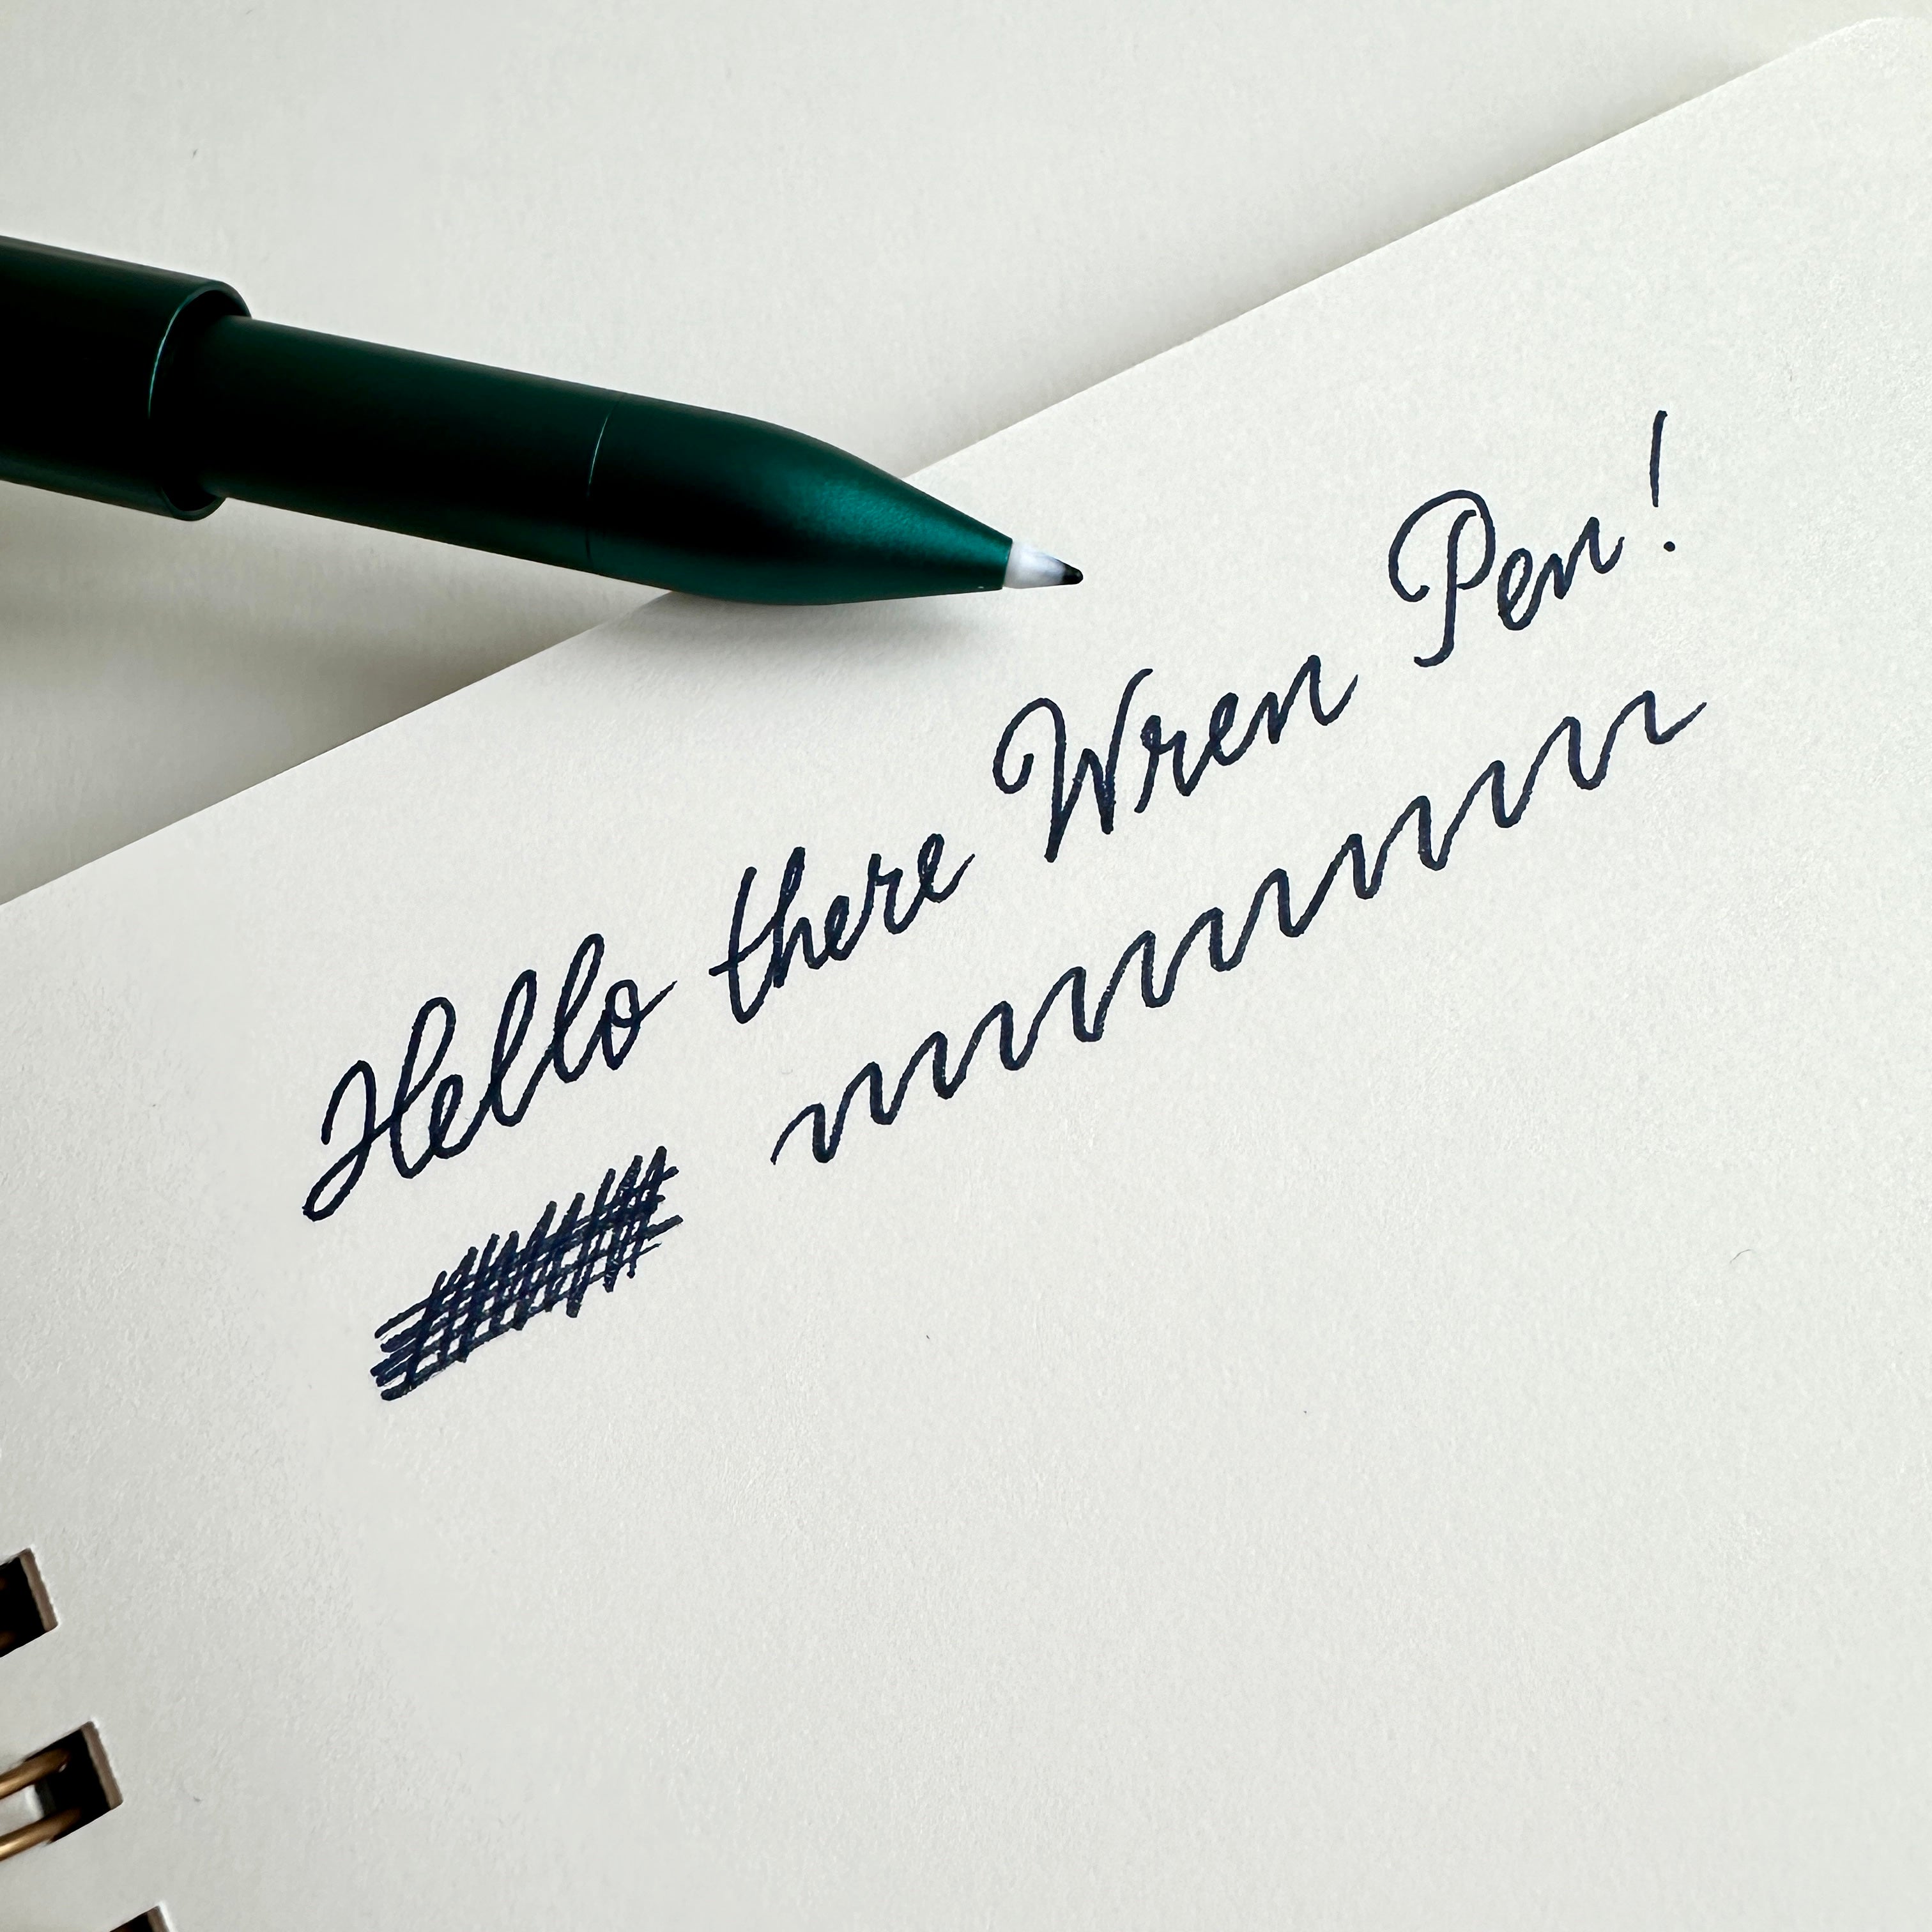 Hello there Wren Pen!